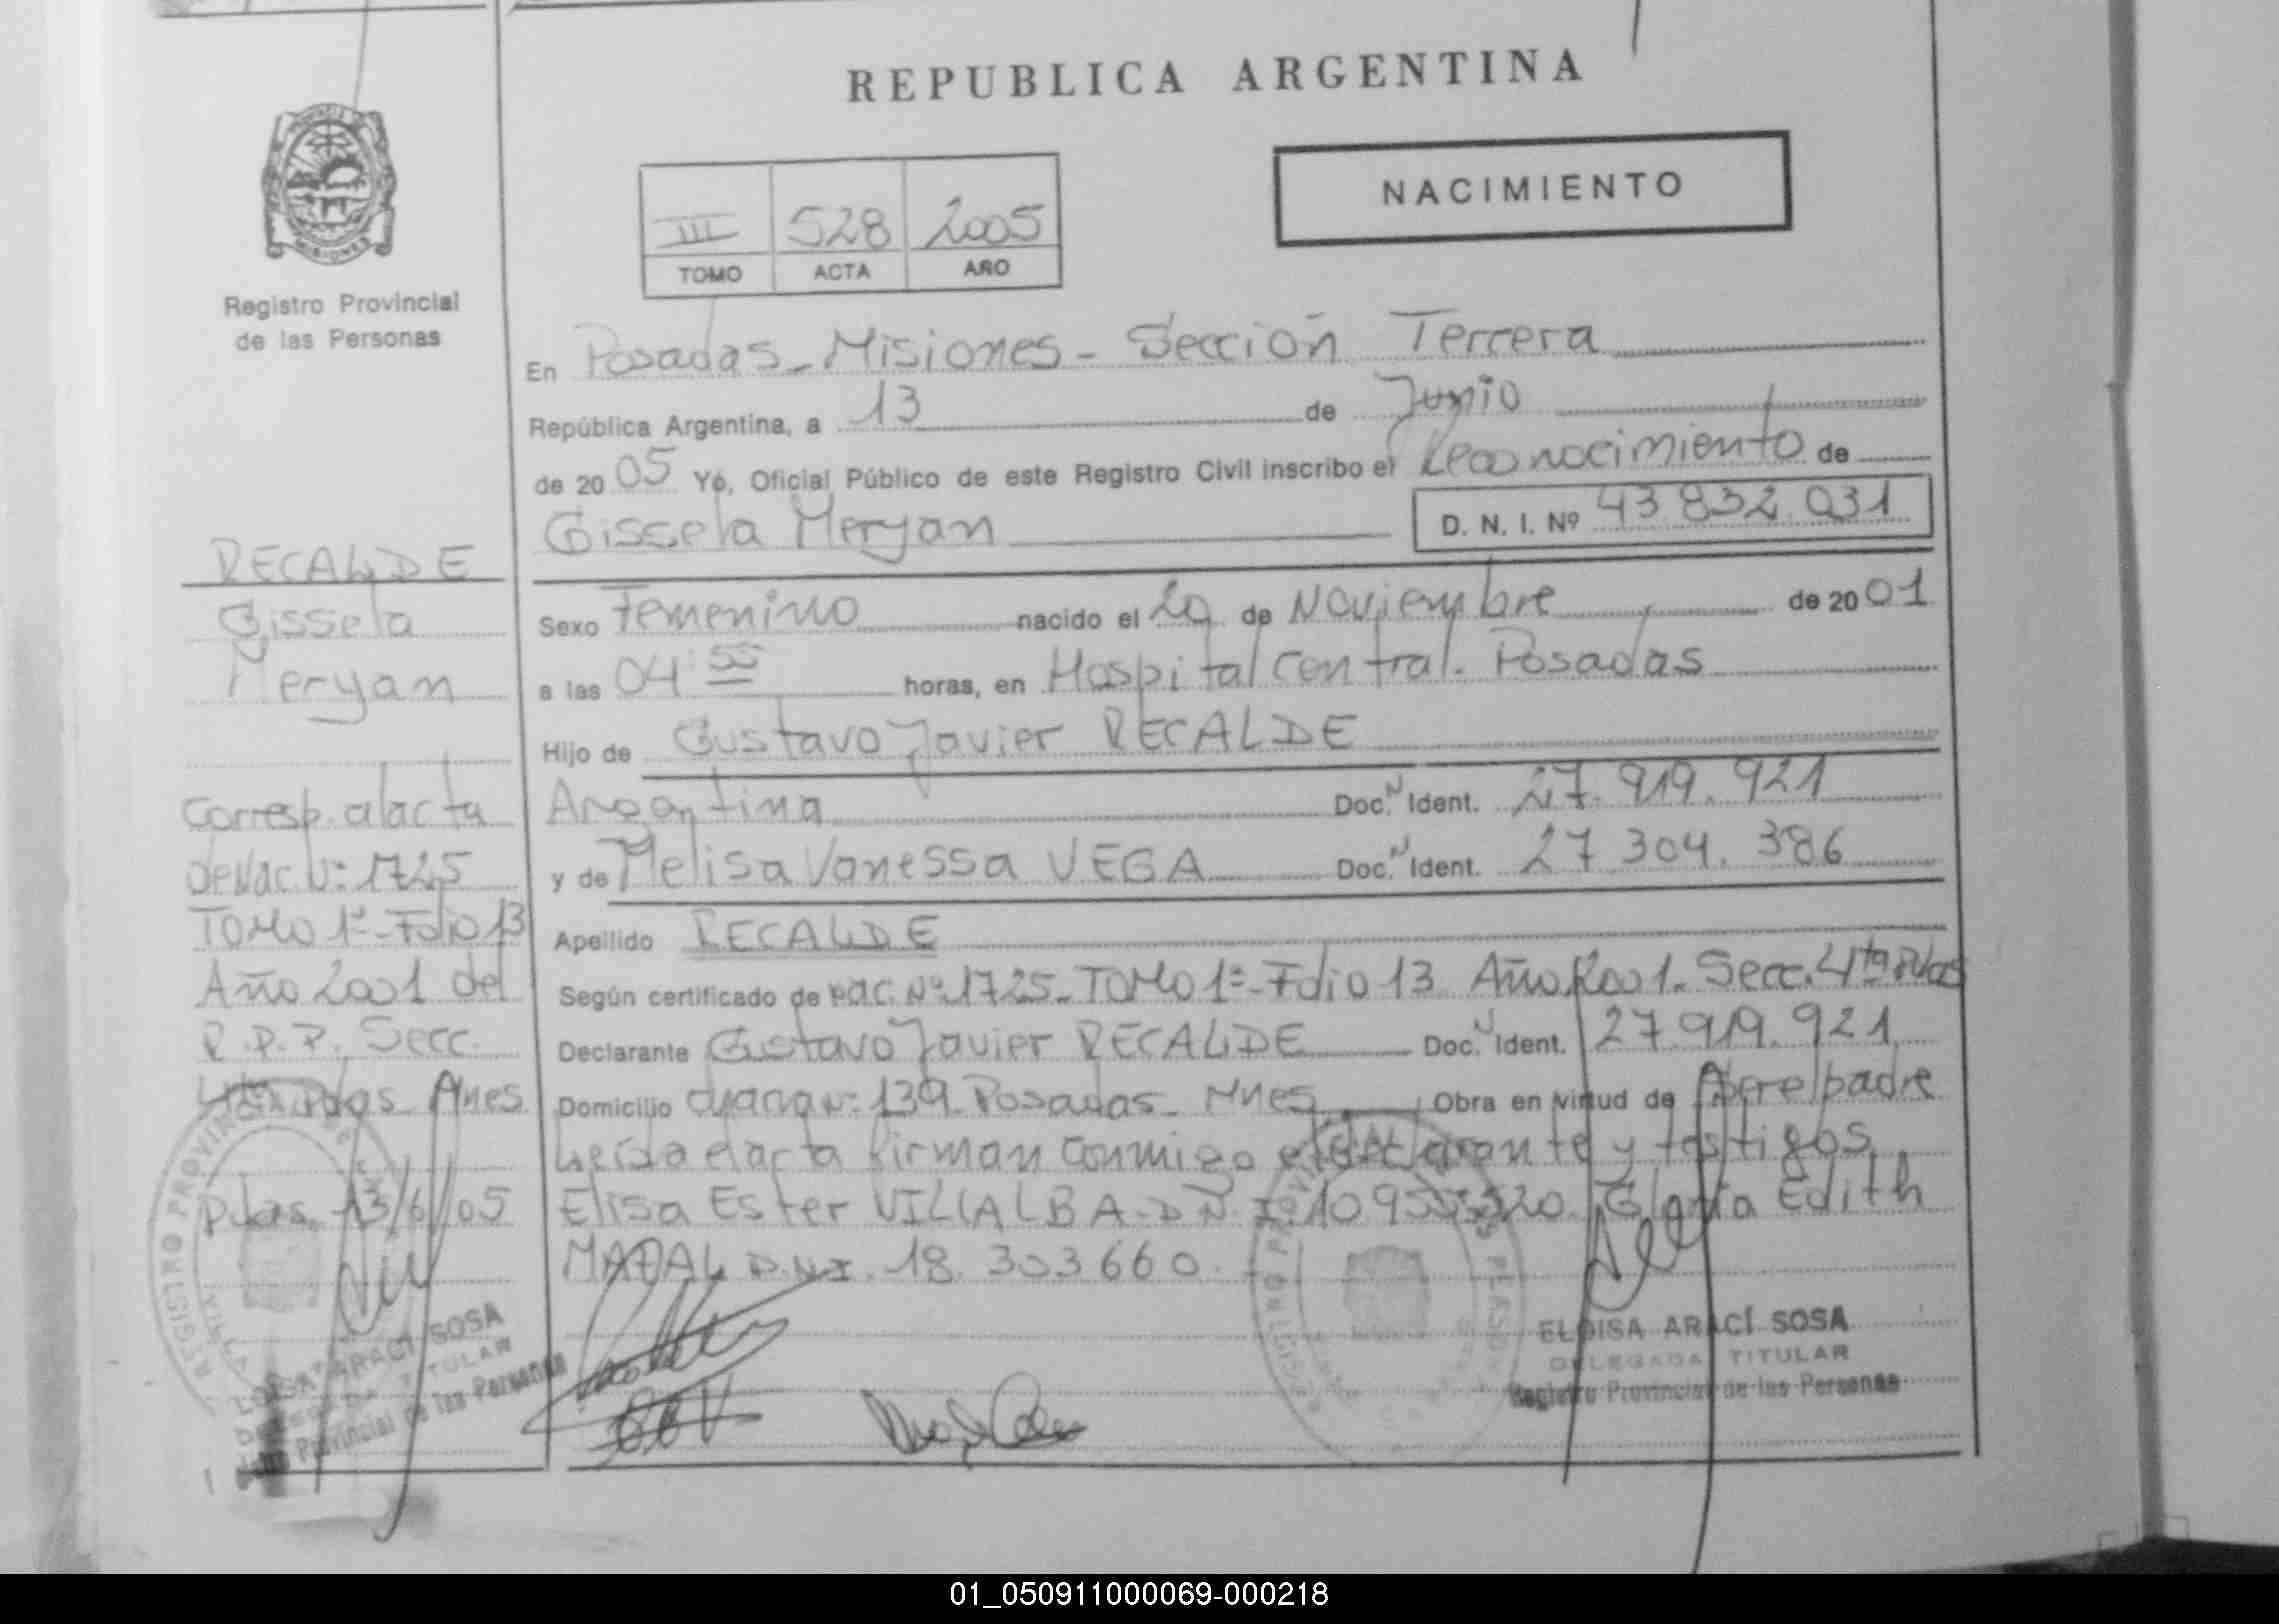 REPUBLICA ARGENTINA
NACIMIENTO
III 528 2005
TOMO ACTA AÑO
Registro Provincial
de las Personas
En Posadas - Misiones - Sección Tercera
República Argentina, a 13 de Junio
de 2005 Yo, Oficial Público de este Registro Civil inscribo el Reconocimiento de
Gissela Meryan D. N. I. Nº 43.832.031
Sexo Femenino nacido el 20 de Noviembre de 2001
a las 04:55 horas, en Hospital Central. Posadas
Hijo de Gustavo Javier RECALDE
Argentina Doc. N Ident. 27.919.921
y de Melisa Vanessa VEGA Doc. N Ident. 27 304. 386
Apellido RECALDE
Según certificado de Nac. Nº 1725 - TOMO 1º - Folio 13 Año 2001. Secc. 4ta Pdas
Declarante Gustavo Javier RECALDE Doc. N Ident. 27.919.921
Domicilio Nº 139 - Posadas - Mnes Obra en virtud de Ser el padre
Leída el acta firman conmigo el declarante y testigos
Elisa Ester VILLALBA - D.N.I. Gloria Edith
D.N.I. 18.303660
RECALDE
Gissela
Meryan
Corresp. al acta
de Nac. Nº: 1725
TOMO 1º - Folio 13
Año 2001 del
R.P.P. Secc.
4ta Pdas Mnes
Pdas. 13/6/05
ELOISA ARACÍ SOSA
DELEGADA TITULAR
Registro Provincial de las Personas
ELOISA ARACÍ SOSA
DELEGADA TITULAR
Provincial de las Personas
REGISTRO PROVINCIAL
REGISTRO PROVINCIAL
01_050911000069-000218